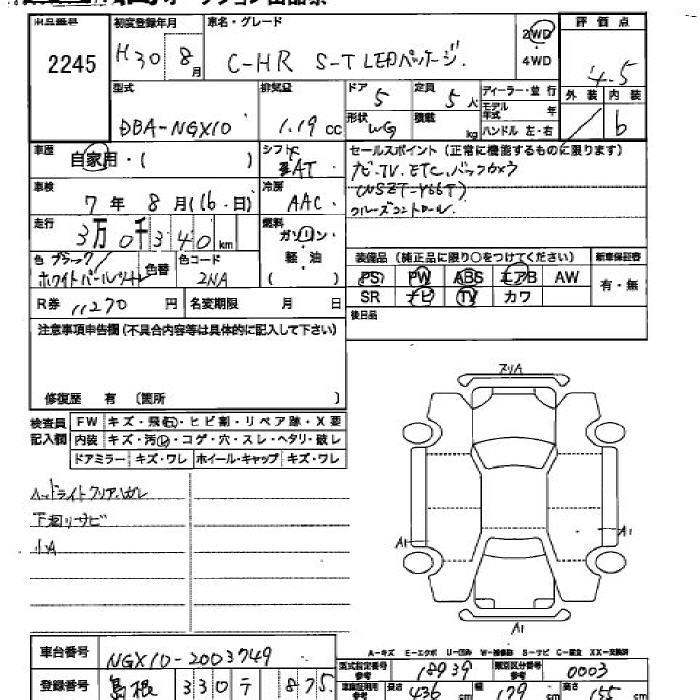 出品番号 初度登録年月 車名・グレード 評価点
2245 H30 8月 C-HR S-T LEDパッケージ. 2WD・4WD 4.5
型式 排気量 ドア 定員 ディーラー・並行 外装 内装
DBA-NGX10 1.19 cc 5 5人 モデル年式 年 b
形状 WG 積載 kg ハンドル 左・右
車歴 自家用・( ) シフト AT セールスポイント (正常に機能するものに限ります)
ナビ.TV.ETC.バックカメラ
車検 7年 8月(16・日) 冷房 AAC (NSZT-Y66T)
クルーズコントロール.
走行 3万0千340km 燃料 ガソリン・軽油 ( )
色 ブラック/ホワイトパール 色替 色コード 2NA
装備品 (純正品に限り○をつけてください) 新車保証書
PS PW ABS エアB AW 有・無
SR ナビ TV カワ
R券 11270 円 名変期限 月 日
後日品
注意事項申告欄(不具合内容等は具体的に記入して下さい)
修復歴 有 (箇所 )
検査員記入欄 FW キズ・飛石・ヒビ割・リペア跡・X要
内装 キズ・汚れ・コゲ・穴・スレ・ヘタリ・破レ
ドアミラー キズ・ワレ ホイール・キャップ キズ・ワレ
ヘッドライトクリアハガレ
下廻りサビ
小A
A1
A1
A1
A-キズ E-エクボ U-凹み W-補修跡 S-サビ C-腐食 XX-交換済
車台番号 NGX10-2003749
型式指定番号参考 18939 類別区分番号参考 0003
登録番号 島根 330 テ 875
車検証明用参考 長さ 436 cm 幅 179 cm 高さ 155 cm